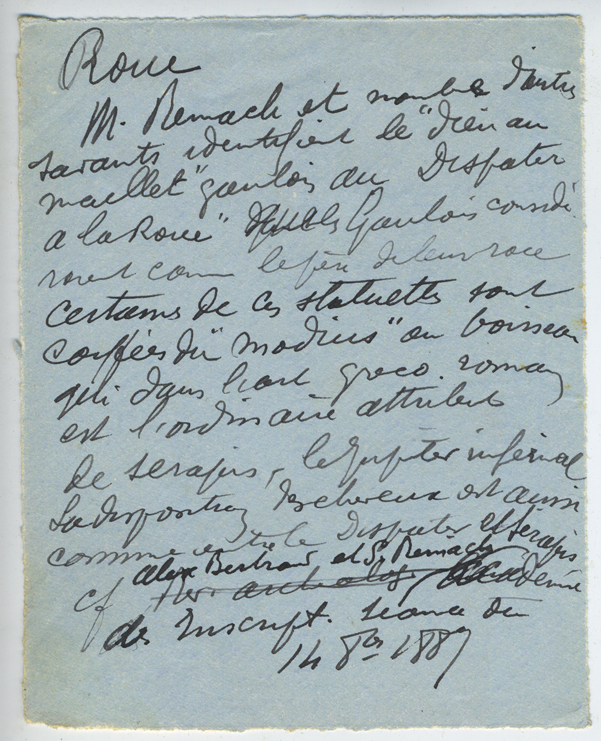 Roue
M. Reinach et nombre d'autres
savants identifient le "dieu au
maillet" gaulois au Dispater
a la Roue" que les Gaulois considé
raient comme le père de leur race
certains de ces statuettes sont
coiffées du "modius" ou boisseau
qui dans l'art greco-romain
est l'ordinaire attribut
de Serapis, le Jupiter infernal
La disposition des cheveux est aussi
commune entre le Dispater et Serapis
cf Alex Bertrand et S. Reinach
Rev archeolog Académie
des Inscript. séance du
14 8bre 1887